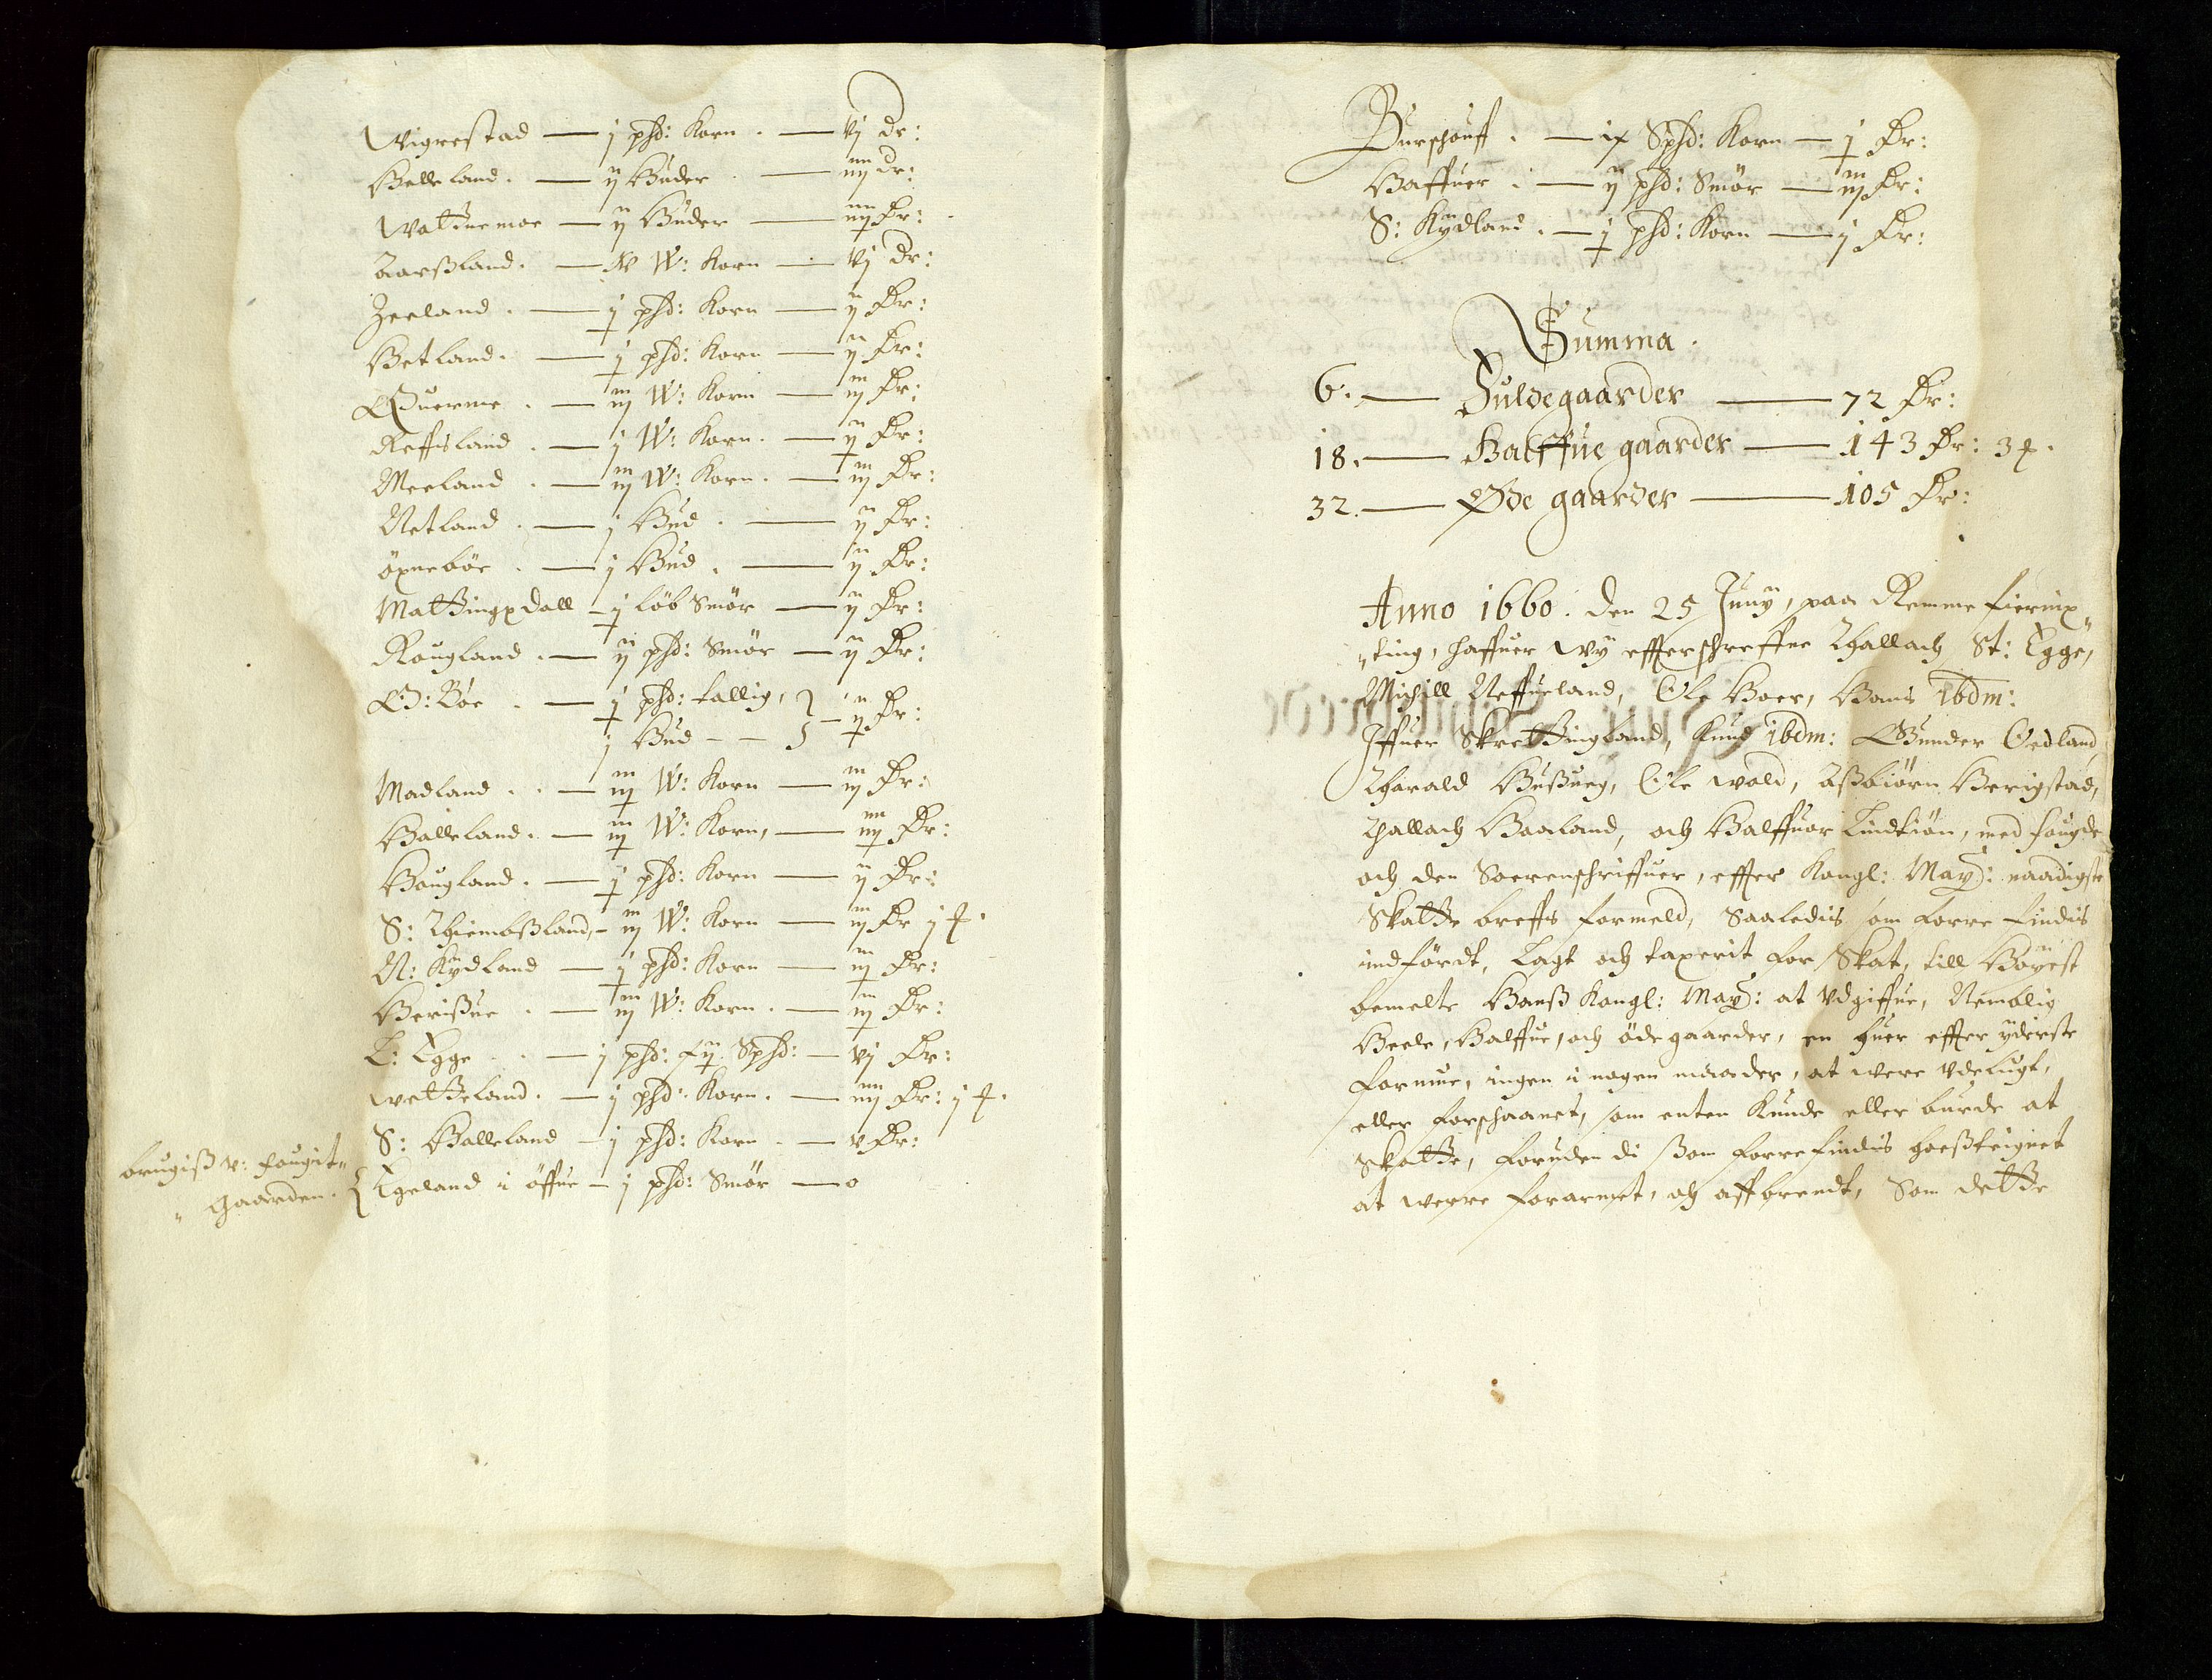 Wigrestad — j phd: Korn — vj dr:
Helleland — ij Huder — iiij dr:
Wattnemoe — ij Huder — iiij dr:
Aarßland — W: Korn — vj dr:
Zeeland — j phd: Korn — ij dr:
Hetland — j phd: Korn — ij dr:
Querme — iij W: Korn — iij dr:
Refsland — j W: Korn — ij dr:
Meeland — iij W: Korn — iij dr:
Netland — j Hud — ij dr:
öxneböe — j Hud — ij dr:
Mattingxdall — j löb Smör — ij dr:
Rougland — ij phd: Smör — ij dr:
G: Böe — j phd: tallig,
j Hud — ij dr:
Madland — iij W: Korn — iij dr:
Hölleland — iij W: Korn, — iiij dr:
Hougland — j phd: Korn — ij dr:
S: Thiembßland, — iij W: Korn — iij dr j ꝑ.
N: Kydland — j phd: Korn — iij dr:
Herißue — iij W: Korn — iij dr:
L: Egge — j phd: ij Sphd: — vj dr:
Wetteland — j phd: Korn — iiij dr: j ꝑ.
S: Hölleland — j phd: Korn — v dr:
brugiß v: fougit
gaarden.
Egeland i öffue — j phd: Smör — 0
Burschouff — ix Sphd: Korn — j dr:
Haffuer — ij phd: Smör — iij dr:
S: Kydland — j phd: Korn — j dr:
Summa.
6. — Fuldegaarder — 72 dr:
18. — Halffue gaarder — 143 dr: 3 ꝑ.
32. — Øde gaarder — 105 dr:
Anno 1660. Den 25 Junij, paa Remme fierinx
ting, haffuer wy effterschreffne Thallach St: Egge,
Michill Neffueland, Ole Hoer, Hans ibdm:
Iffuer Skrettingland, Knud ibdm: Gunder Oedland
Tharald Hußueg, Ole wold, Aßbiörn Herigstad,
Thallach Haaland, och Halffuor Lindtiön, med fougde
och den Soerenschriffuer, effter Kongl: May: naadigste
Skatte breffs formeld, Saaledis som forre findis
indfördt, Lagt och taxerit for Skat, till Höyest
bemelte Hanß Kongl: May: at vdgiffue, Nemblig
Heele, Halffue, och öde gaarder, en huer effter yderste
formue, ingen i nogen maader, at were vdelugt,
eller forschaanet, som enten Kunde eller burde at
Skatte, foruden di som forrefindis hoeßteignet
at werre forarmet, och affbrendt, Som dette